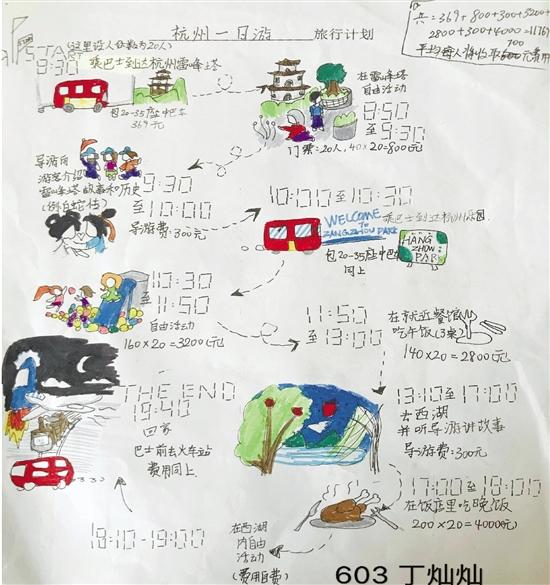 杭州一日游 旅行计划
共=369+800+300+3200+
2800+300+4000=11769
700
平均每人将收取元费用
START
(这里设人份数为20人)
9:30
乘巴士到达杭州雷峰塔
包20-35座中巴车
369元
在雷峰塔
自由活动
9:50
至
9:30
门票:20人,40×20=800元
导游向
游客介绍
雷峰塔故事和历史
(例白蛇传)
9:30
至
10:00
导游费:300元
10:00至10:30
乘巴士到达杭州乐园.
WELCOME
TO
ZANGZHOU PARK
HANG
ZHOU
PAR
包20-35座中巴车
同上
10:30
至
11:50
自由活动
160×20=3200(元)
11:50
至
13:00
在就近餐馆
吃午饭
140×20=2800元
13:10至17:00
去西湖
并听导游讲故事
导游费:300元
THE END
19:40
回家
巴士前去火车站
费用同上
17:00至18:00
在饭店里吃晚饭
200×20=4000(元)
在西湖
内自由
活动
(费用自费)
18:10-19:00
603 丁灿灿